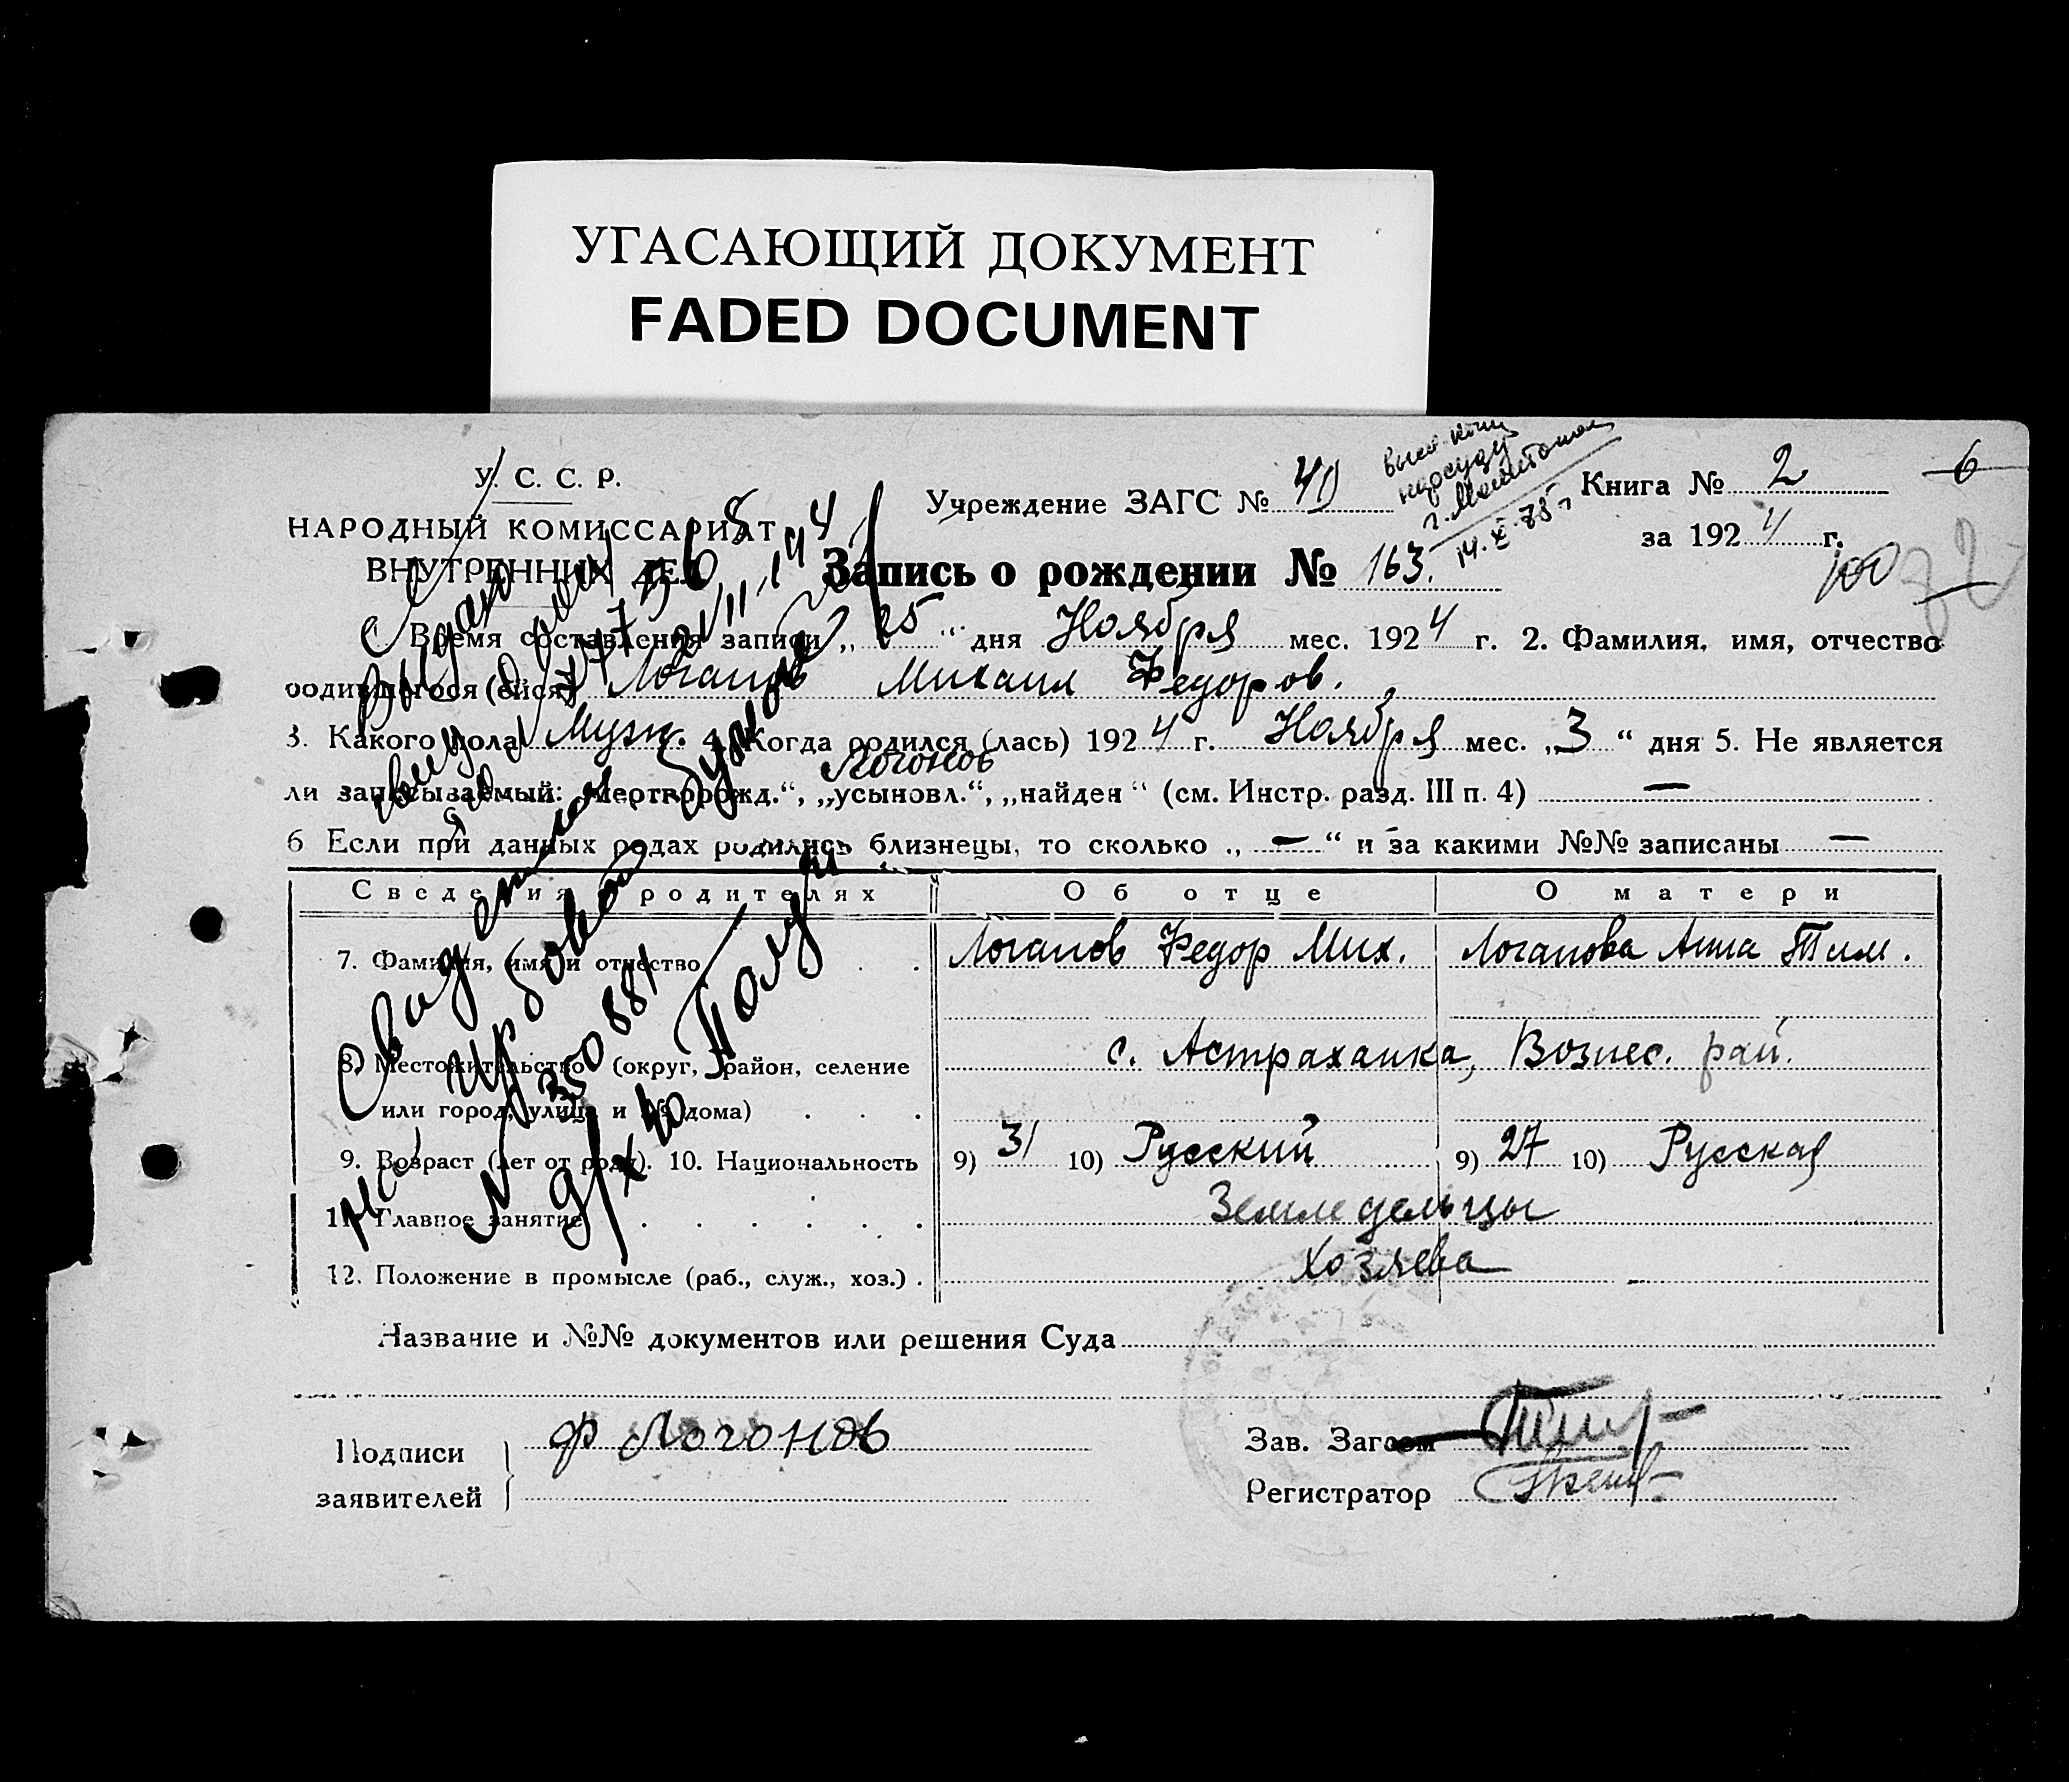 УГАСАЮЩИЙ ДОКУМЕНТ
FADED DOCUMENT
У. С. С. Р.
НАРОДНЫЙ КОМИССАРИАТ
ВНУТРЕННИХ ДЕЛ
Учреждение ЗАГС № 40
нарсуду
14.X.75 г
Книга № 2
6
за 1924 г.
100
Запись о рождении № 163.
Время составления записи „25“ дня Ноября мес. 1924 г. 2. Фамилия, имя, отчество
родившегося (ейся) Логанов Михаил Федоров.
3. Какого пола Мужс. 4. Когда родился (лась) 1924 г. Ноября мес. „3“ дня 5. Не является
Логонов
ли записываемый: „мертворожд.“, „усыновл.“, „найден“ (см. Инстр. разд. III п. 4) —
6 Если при данных родах родились близнецы, то сколько „—“ и за какими №№ записаны —
Сведения о родителях
Об отце
О матери
7. Фамилия, имя и отчество
Логанов Федор Мих.
Логанова Анна Тим.
8. Местожительство (округ, район, селение
или город, улица и № дома)
с. Астраханка, Вознес. рай.
9. Возраст (лет от роду). 10. Национальность
9) 31 10) Русский
9) 27 10) Русская
11. Главное занятие
Земледельцы
12. Положение в промысле (раб., служ., хоз.).
Хозяева
Свидетел
№ 350881
Получ
Название и №№ документов или решения Суда
Подписи
заявителей
Ф Логонов
Зав. Загсом
Регистратор